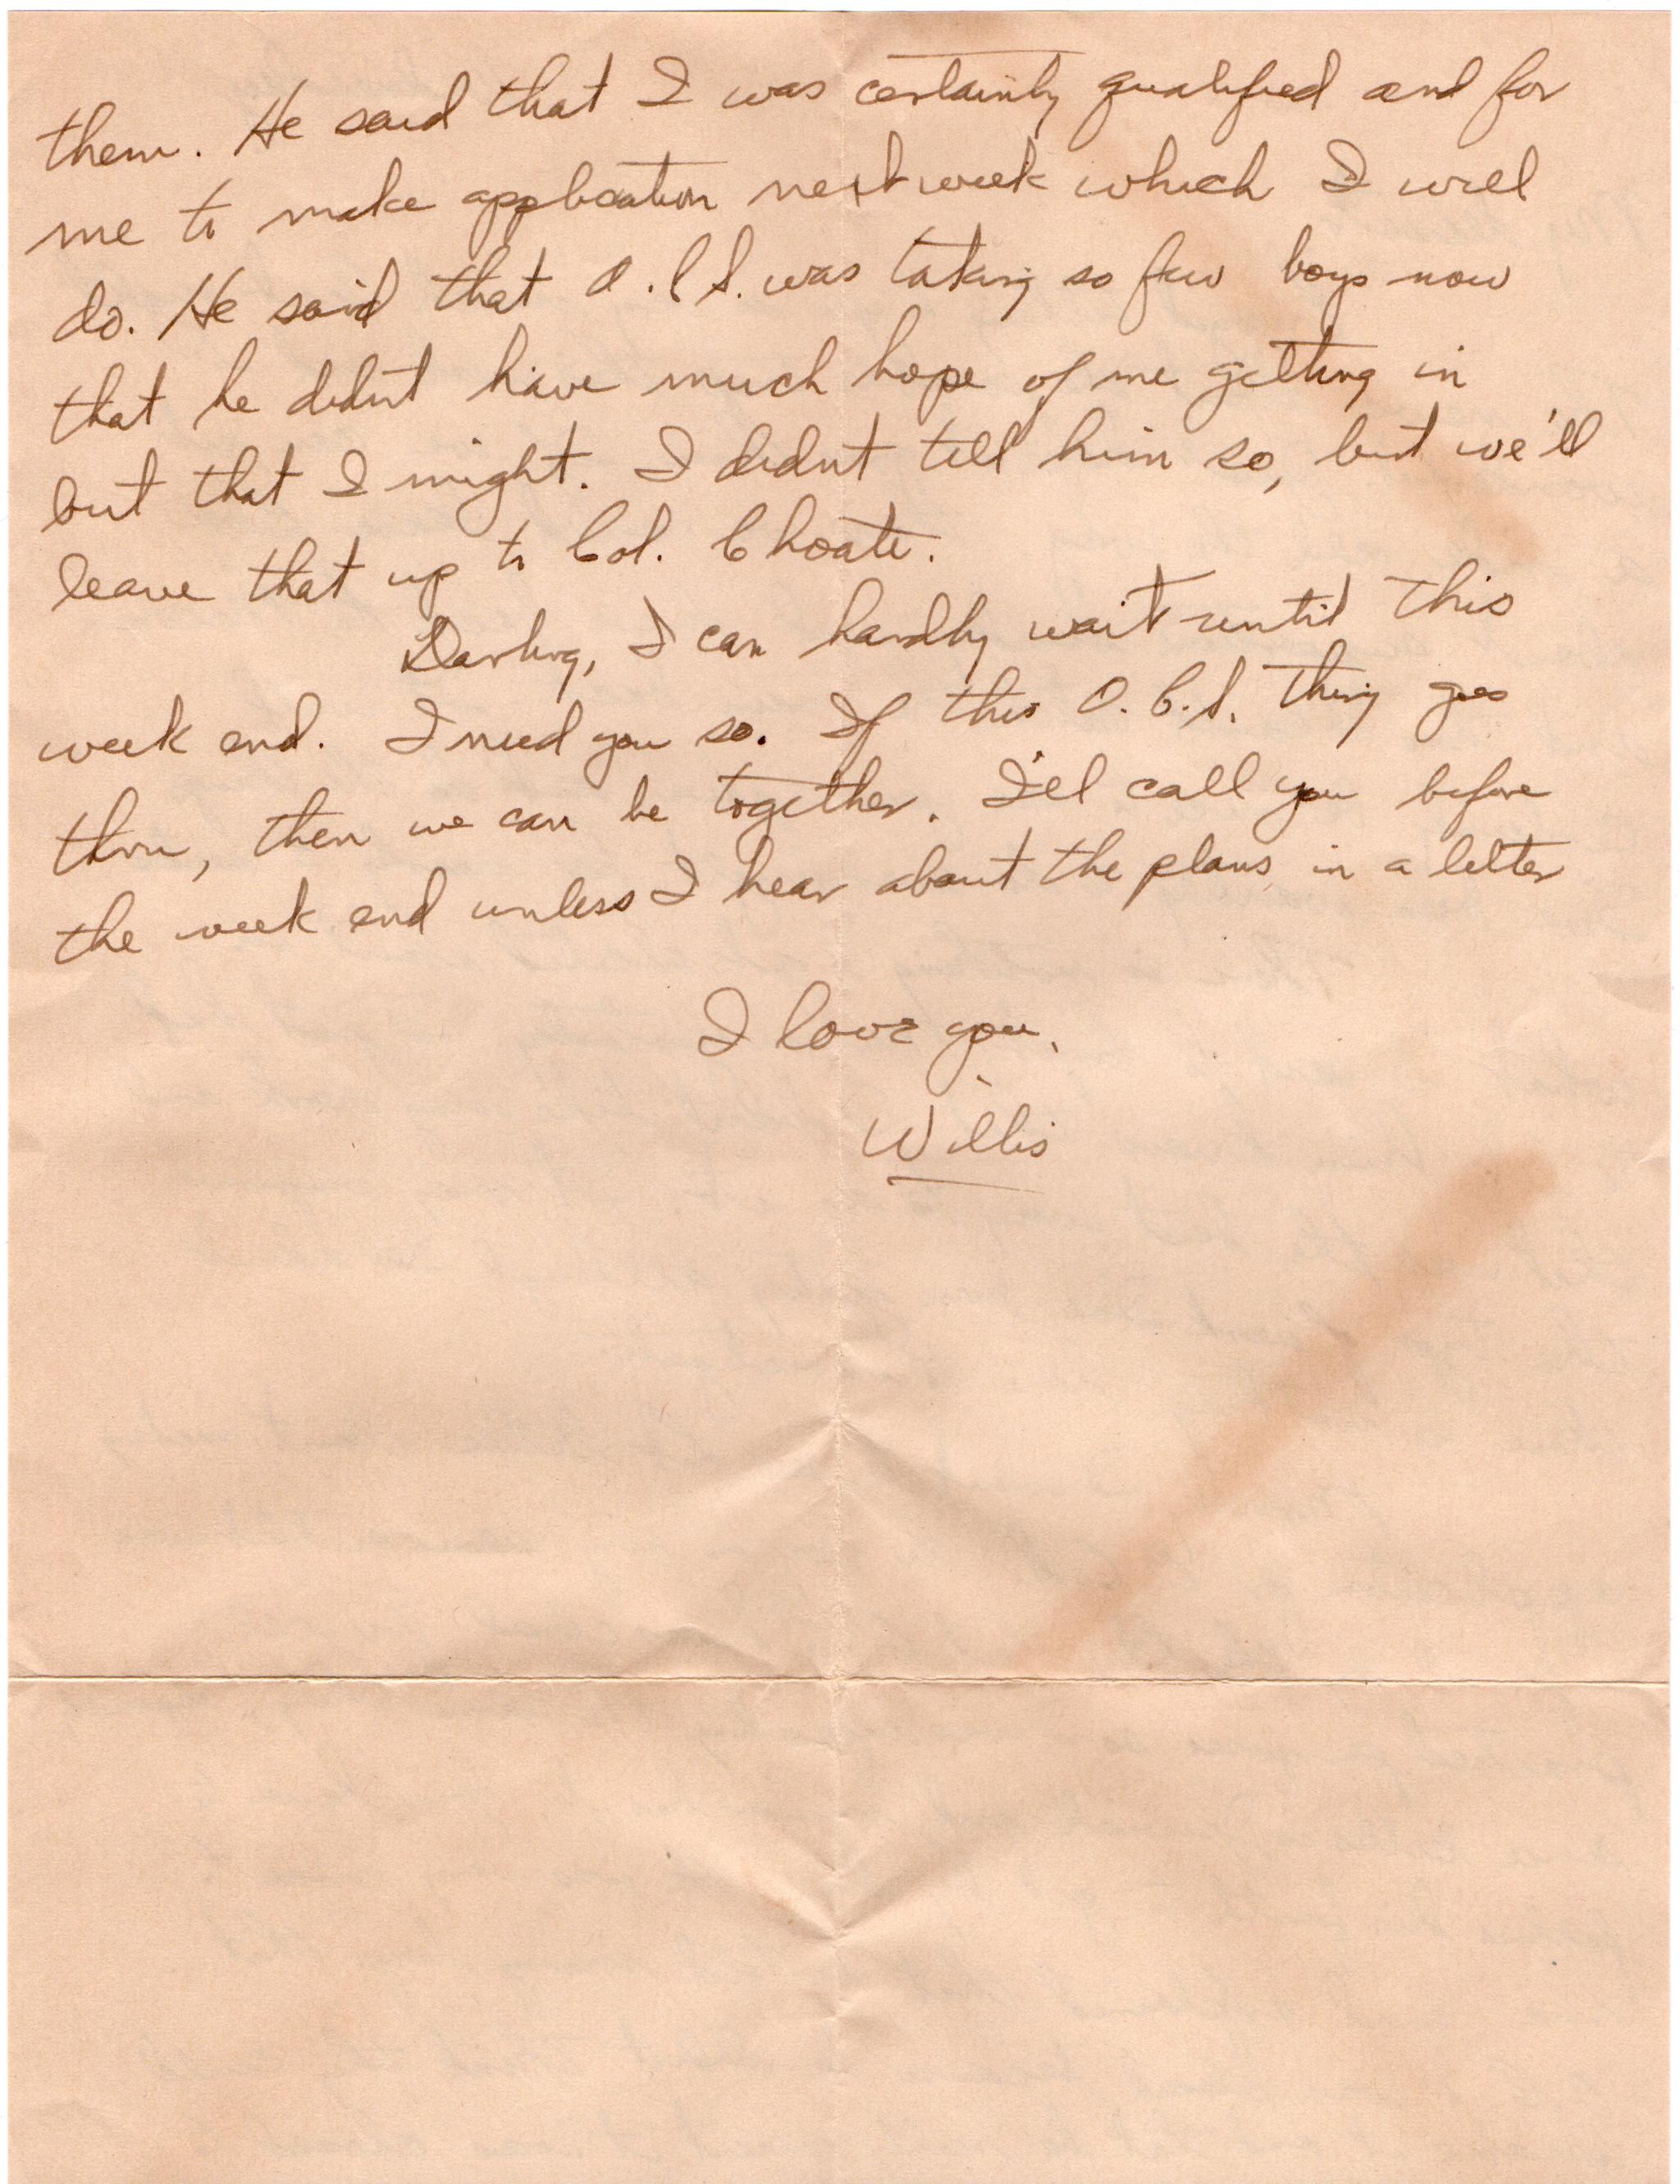 them. He said that I was certainly qualified and for
me to make application next week which I will
do. He said that O.C.S. was taking so few boys now
that he didnt have much hope of me getting in
but that I might. I didnt tell him so, but we'll
leave that up to Col. Choate.
Darling, I can hardly wait until this
week end. I need you so. If this O.C.S. thing goes
thru, then we can be together. I'll call you before
the week end unless I hear about the plans in a letter
I love you.
Willis